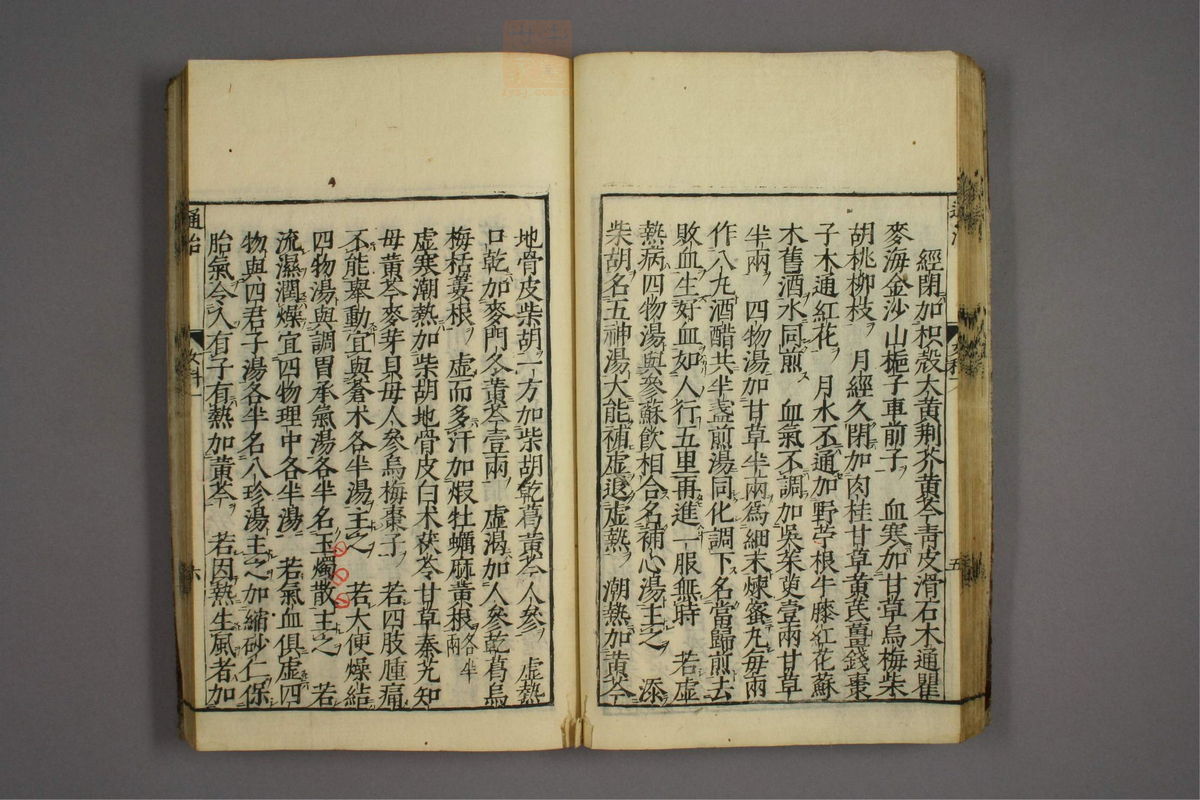 經閉加枳殼大黃荆芥黃芩青皮滑石木通瞿
麥海金沙山梔子車前子　血寒加甘草烏梅柴
胡桃柳枝　月經久閉加肉桂甘草黃芪薑錢棗
子木通紅花　月水不通加野苧根牛膝紅花蘇
木舊酒水同煎　血氣不調加吳茱萸壹兩甘草
半兩　四物湯加甘草半兩爲細末煉蜜丸每兩
作八丸酒醋共半盞煎湯同化調下名當歸煎去
敗血生好血如人行五里再進一服無時　若虛
熱病四物湯與參蘇飲相合名補心湯主之　添
柴胡名五神湯大能補虛退虛熱　潮熱加黃芩
五
地骨皮柴胡一方加柴胡乾葛黃芩人參　虛熱
口乾加麥門冬黃芩壹兩　虛渴加人參乾葛烏
梅栝蔞根　虛而多汗加煆牡蠣麻黃根各半兩
虛寒潮熱加柴胡地骨皮白术茯苓甘草秦艽知
母黃芩麥芽貝母人參烏梅棗子　若四肢腫痛
不能舉動宜與蒼术各半湯主之　若大便燥結
四物湯與調胃承氣湯各半名玉燭散主之　若
流濕潤燥宜四物理中各半湯　若氣血俱虛四
物與四君子湯各半名八珍湯主之加縮砂仁保
胎氣令人有子有熱加黃芩　若因熱生風者加
通治
女科一
六